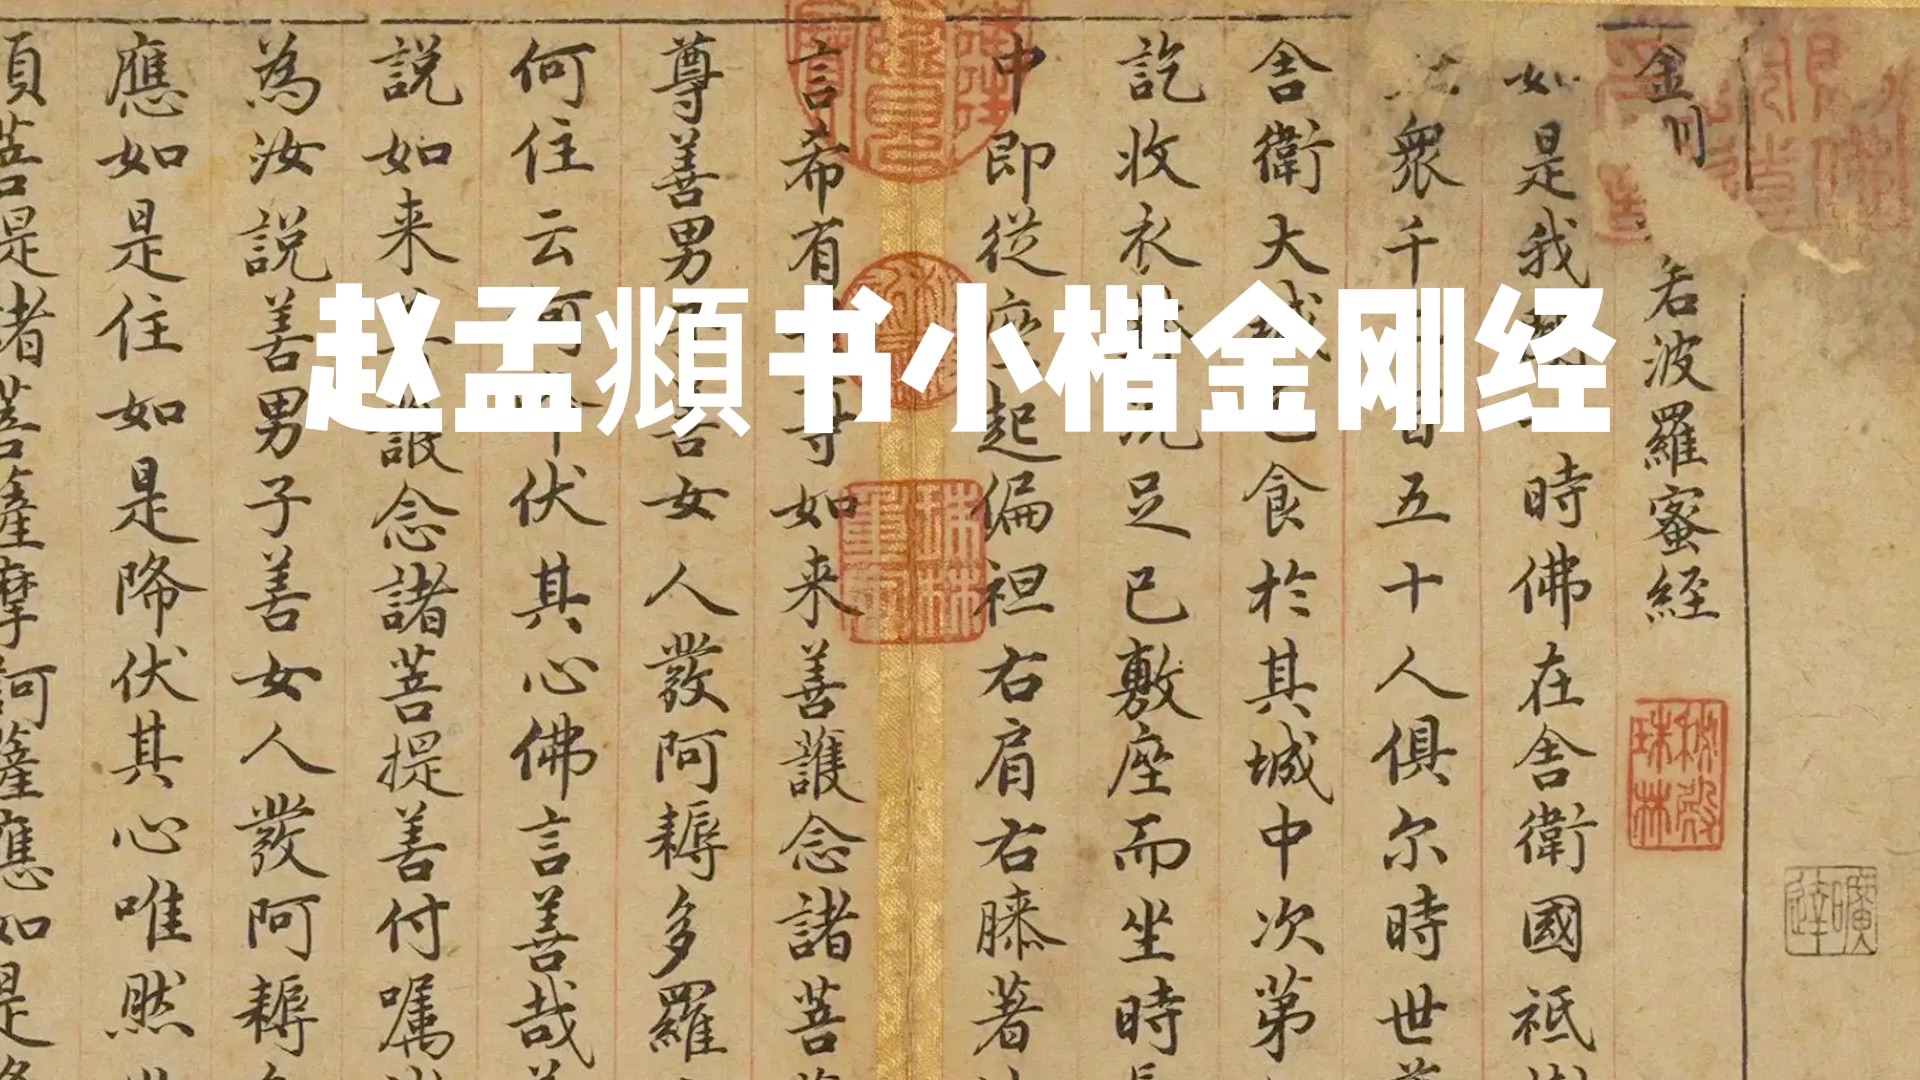 赵孟頫书小楷金刚经
金 若波羅蜜經
如是我 時佛在舍衛國祇
眾千 百五十人俱尔時世
舍衛大城乞食於其城中次第
訖收衣 洗足已敷座而坐時長
中即從座起偏袒右肩右膝著
言希有 如来善護念諸菩
尊善男子善女人發阿耨多羅
何住云何 伏其心佛言善哉善
說如来善護念諸菩提善付囑
為汝說善男子善女人發阿耨
應如是住如是降伏其心唯然世
須菩是諸菩薩摩訶薩應如是降
秘殿珠林
珠林重定